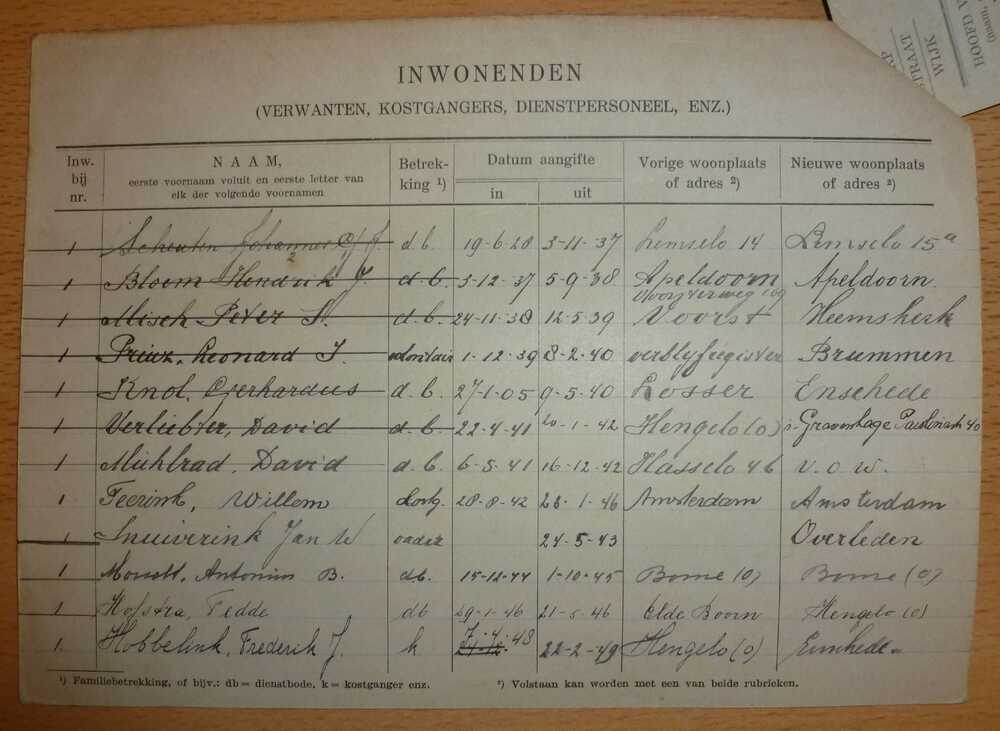 HOOFD V
(naam,
WIJK
STRAAT
INWONENDEN
(VERWANTEN, KOSTGANGERS, DIENSTPERSONEEL, ENZ.)
Inw. bij nr. NAAM, eerste voornaam voluit en eerste letter van elk der volgende voornamen Betrekking ¹) Datum aangifte in uit Vorige woonplaats of adres ²) Nieuwe woonplaats of adres ²)
1 Johannes J. d.b. 19-6-28 3-11-37 Lemselo 14 Lemselo 15a
1 Bloem Hendrik J. d-b. 3-12-37 5-9-38 Apeldoorn Apeldoorn.
1 Misch Peter S. d.b. 24-11-38 12-5-39 Voorst Heemskerk
1 Prinz, Leonard J. 1-12-39 8-2-40 verblyfregister Brummen
1 Knol, Gerhardus d.b. 27-1-05 9-5-40 Losser Enschede
1 Verliebter, David d-b 22-4-41 20-1-42 Hengelo (o) s-Gravenhage 40
1 Mühlrad, David d.b. 6-5-41 16-12-42 Hasselo 46 v.o.w.
1 Feerink, Willem 28-8-42 28-1-46 Amsterdam Amsterdam
1 Snuiverink Jan W vader 24-5-43 Overleden
1 Antonius B. db. 15-12-44 1-10-45 Borne (o) Borne (o)
1 Hofstra, Tedde db 29-1-46 21-5-46 Olde Boorn Hengelo (o)
1 Hobbelink, Frederik J. k 7-4-48 22-2-49 Hengelo (o) Enschede
¹) Familiebetrekking, of bijv.: db = dienstbode, k = kostganger enz. ²) Volstaan kan worden met een van beide rubrieken.